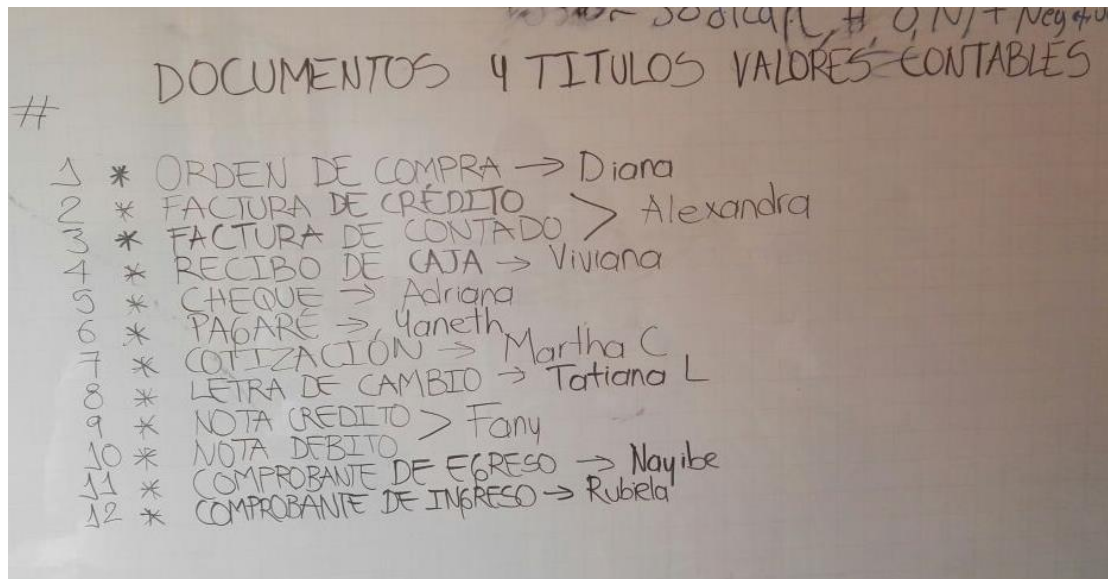 DOCUMENTOS Y TITULOS VALORES CONTABLES
#
1 * ORDEN DE COMPRA → Diana
2 * FACTURA DE CRÉDITO > Alexandra
3 * FACTURA DE CONTADO
4 * RECIBO DE CAJA → Viviana
5 * CHEQUE → Adriana
6 * PAGARÉ → Yaneth
7 * COTIZACIÓN → Martha C
8 * LETRA DE CAMBIO → Tatiana L
9 * NOTA CREDITO > Fany
10 * NOTA DEBITO
11 * COMPROBANTE DE EGRESO → Nayibe
12 * COMPROBANTE DE INGRESO → Rubiela